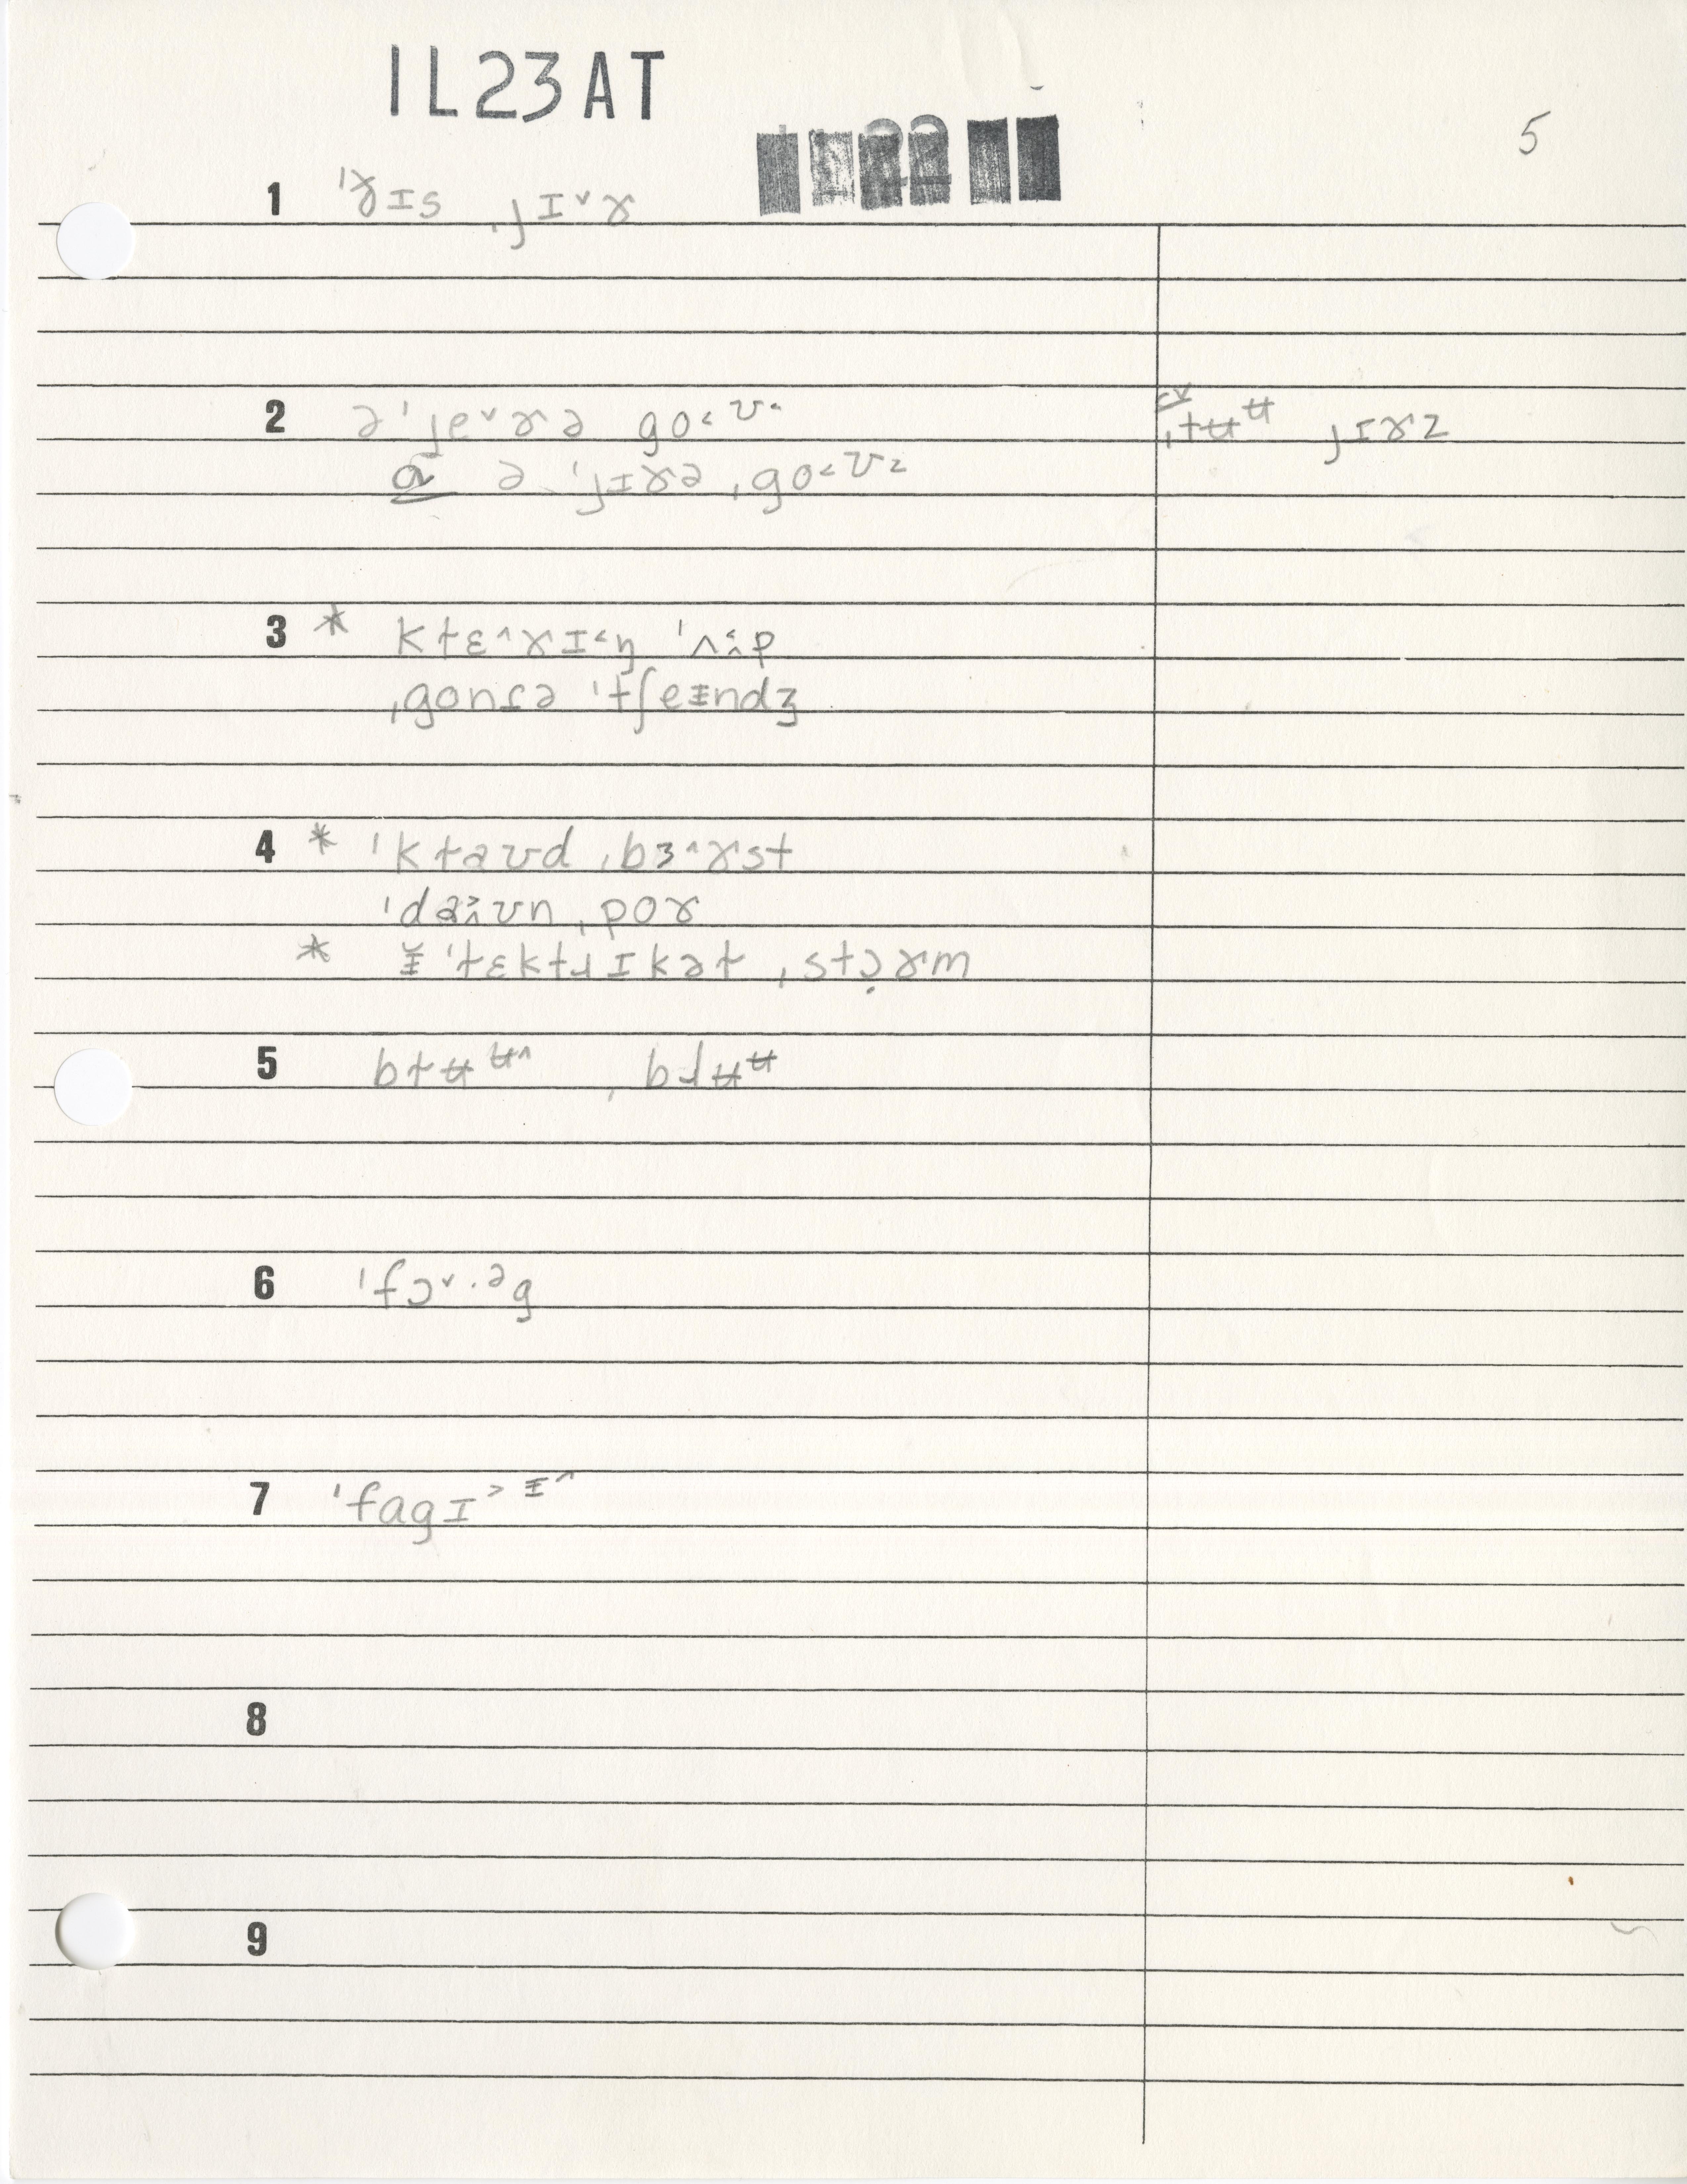 IL23AT
5
1 ˈɤɪs ˌjɪ˅ɤ
2 əˈje˅ɤə go˂ʊ˂
a əˈjɪɤə ˌgo˂ʊ˂
cv
ˌɫʉᶶ jɪɤz
3 * kɫɛ˄ɤɪ˂ŋ ˈʌp
ˌgonɾə ˈtʃeɪndʒ
4 * ˈkɫaʊd ˌbɜ˄ɤst
ˈdaʊn ˌpoɤ
* ᵻˈɫɛktɹɪkəɫ ˌstɔɤm
5 bɫʉᶶ˄ , bɹʉᶶ
6 ˈfɔ˅·əg
7 ˈfagɪ˃ᵻ˄
8
9